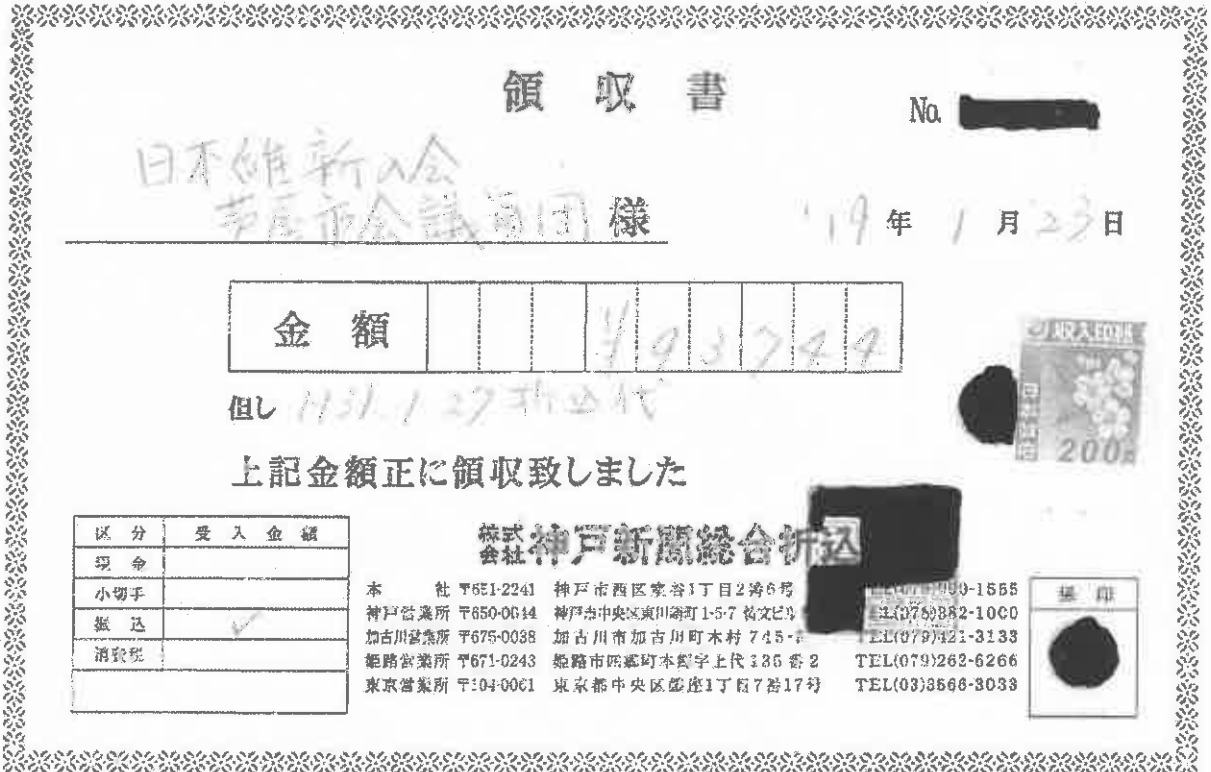 領収書
No.
日本維新の会
芦屋市会議員団 様
'19年 1月 23日
金額 ¥93744
但し H31.1.27折込代
収入印紙
200円
上記金額正に領収致しました
区分 受入金額
現金
小切手
振込 ✓
消費税
株式会社神戸新聞総合折込
本社 〒651-2241 神戸市西区室谷1丁目2番6号
神戸営業所 〒650-0044 神戸市中央区東川崎町1-5-7
加古川営業所 〒675-0038 加古川市加古川町木村745- TEL(079)421-3133
姫路営業所 〒671-0243 姫路市四郷町本郷字上代135番 TEL(079)262-6266
東京営業所 〒104-0061 東京都中央区銀座1丁目7番17号 TEL(03)3566-3033
扱印